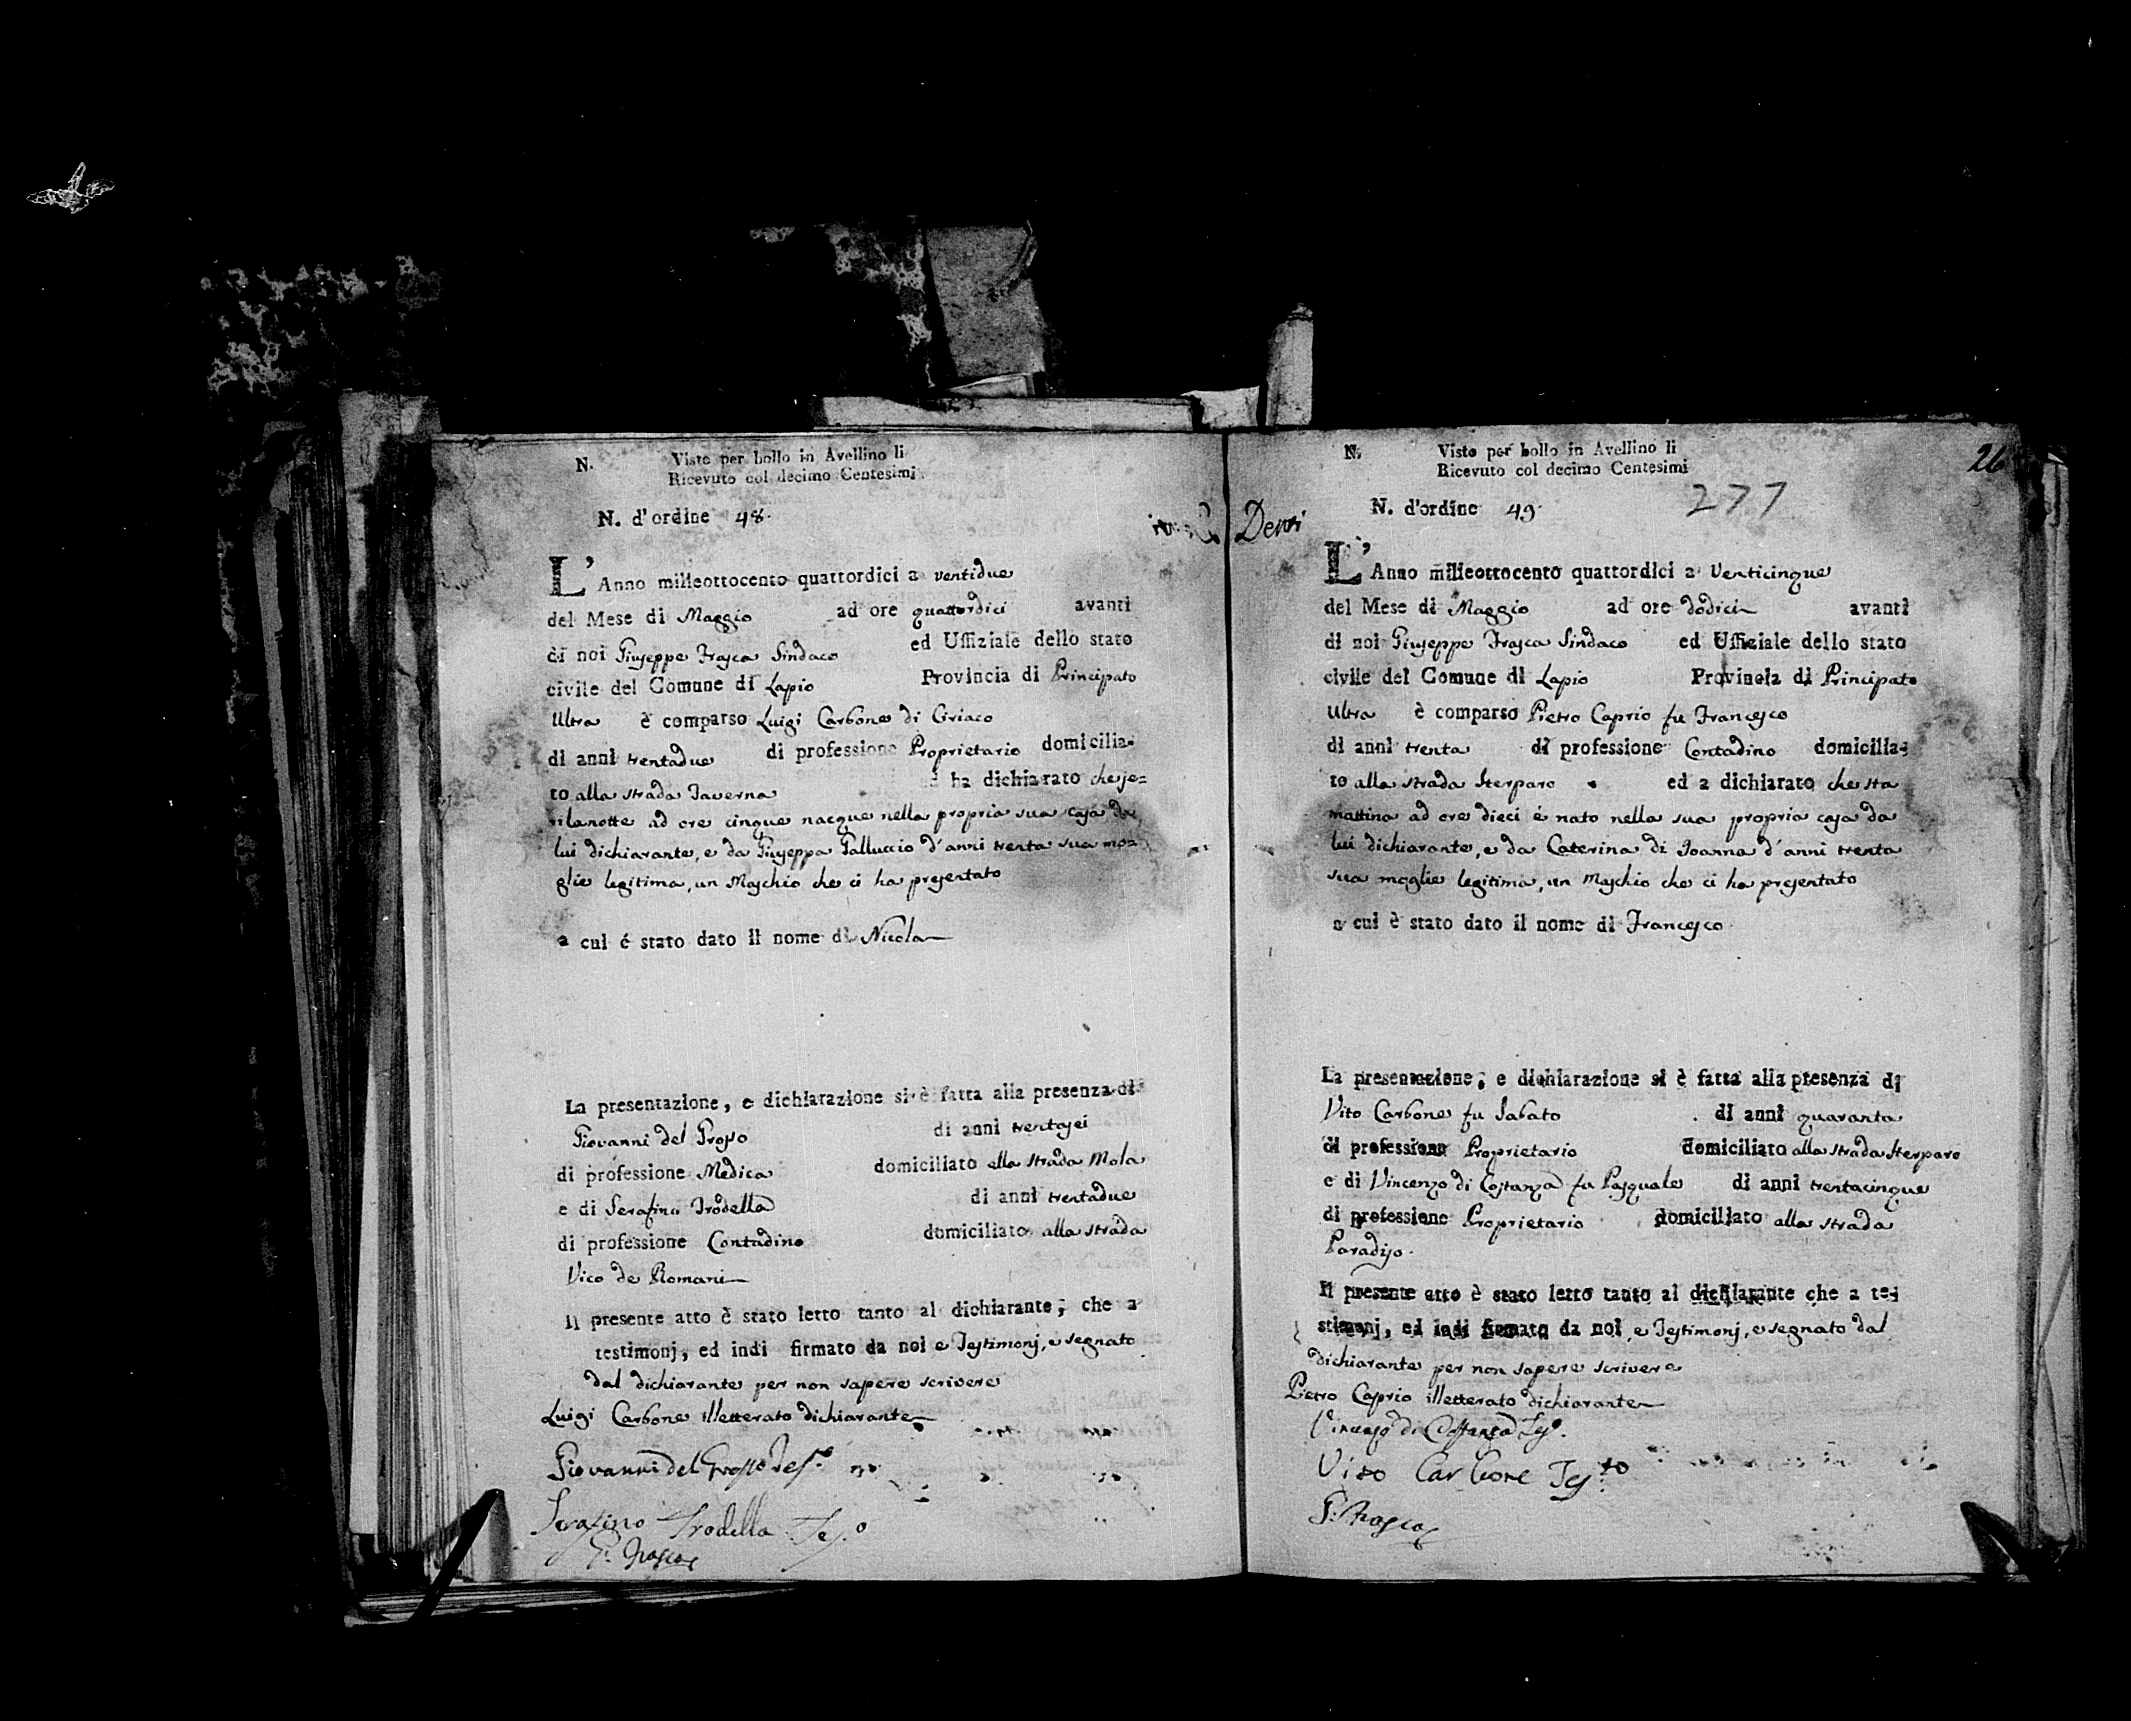 N. Visto per bollo in Avellino li
Ricevuto col decimo Centesimi
N. d'ordine 48.
L'Anno milleottocento quattordici a ventidue
del Mese di Maggio ad ore quattordici avanti
di noi Giuseppe Frasca Sindaco ed Uffiziale dello stato
civile del Comune di Lapio Provincia di Principato
Ultra è comparso Luigi Carbone di Ciriaco
di anni trentadue di professione Proprietario domicilia-
to alla strada Taverna ha dichiarato che je=
rilanotte ad ore cinque nacque nella propria sua casa da
lui dichiarante, e da Giuseppa Galluccio d'anni trenta sua mo=
glie legitima, un Maschio che ci ha presentato
a cui é stato dato il nome di Nicola
La presentazione, e dichiarazione si è fatta alla presenza di
Giovanni del Grosso di anni trentasei
di professione Medica domiciliato alla strada Mola
e di Serafino Trodella di anni trentadue
di professione Contadino domiciliato alla strada
Vico de Romani
Il presente atto è stato letto tanto al dichiarante, che a
testimonj, ed indi firmato da noi e Testimonj, e segnato
dal dichiarante per non sapere scrivere
Luigi Carbone illetterato dichiarante
Giovanni del Grosso Tes.º
Serafino Trodella Tes.º
G. Frasca
26
N. Visto per bollo in Avellino li
Ricevuto col decimo Centesimi
277
N. d'ordine 49.
L'Anno milleottocento quattordici a Venticinque
del Mese di Maggio ad ore dodici avanti
di noi Giuseppe Frasca Sindaco ed Uffiziale dello stato
civile del Comune di Lapio Provincia di Principato
Ultra è comparso Pietro Caprio fu Francesco
di anni trenta di professione Contadino domicilia-
to alla strada Sterparo ed a dichiarato che sta
mattina ad ore dieci é nato nella sua propria casa da
lui dichiarante, e da Caterina di Joanna d'anni trenta
sua moglie legitima, un Maschio che ci ha presentato
a cui è stato dato il nome di Francesco
La presentazione, e dichiarazione si è fatta alla presenza di
Vito Carbone fu Sabato di anni quaranta
di professione Proprietario domiciliato alla strada Sterparo
e di Vincenzo di Costanza fu Pasquale di anni trentacinque
di professione Proprietario domiciliato alla strada
Paradiso.
Il presente atto è stato letto tanto al dichiarante che a te-
stimonj, ed indi firmato da noi, e Testimonj, e segnato dal
dichiarante per non sapere scrivere
Pietro Caprio illetterato dichiarante
Vincenzo di Costanza Tes.º
Vito Carbone Tes.to
G. Frasca